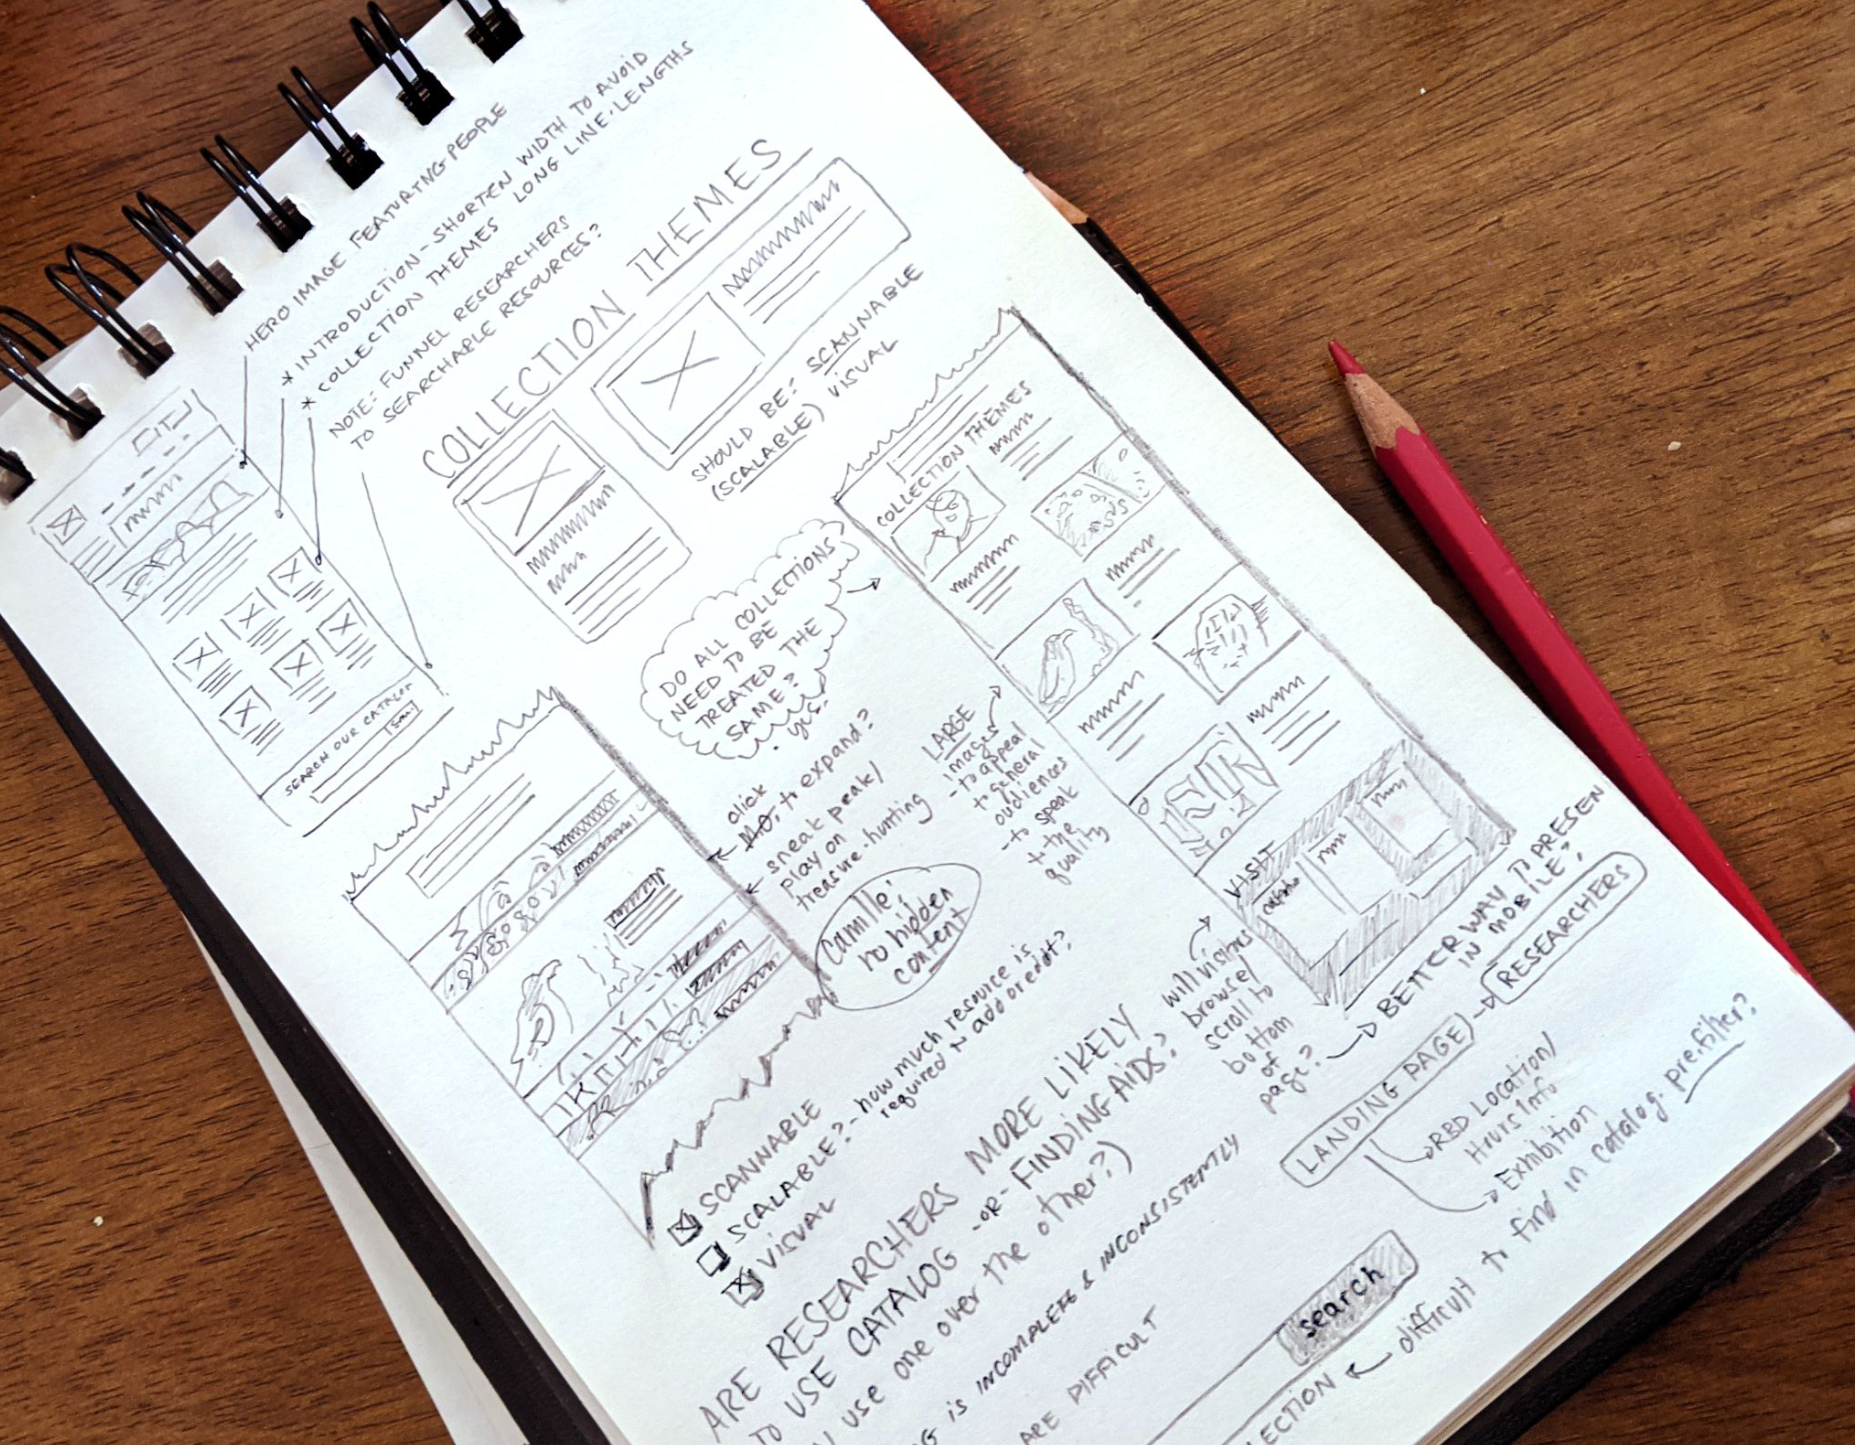 HERO IMAGE FEATURING PEOPLE
* INTRODUCTION - SHORTEN WIDTH TO AVOID
LONG LINE-LENGTHS
* COLLECTION THEMES
NOTE: FUNNEL RESEARCHERS
TO SEARCHABLE RESOURCES?
SEARCH OUR CATALOG
COLLECTION THEMES
SHOULD BE: SCANNABLE
(SCALABLE) VISUAL
DO ALL COLLECTIONS
NEED TO BE
TREATED THE
SAME?
yes.
COLLECTION THEMES
click
NO, to expand?
sneak peak/
play on
treasure-hunting
Camille:
no hidden
content
LARGE
images
- to appeal
to general
audiences
- to speak
to the
quality
VISIT
will visitors
browse/
scroll to
bottom
of
page?
BETTER WAY TO PRESEN
IN MOBILE?
SCANNABLE
SCALABLE? - how much resource is
required to add or edit?
VISUAL
ARE RESEARCHERS MORE LIKELY
TO USE CATALOG -OR- FINDING AIDS?
use one over the other?)
IS INCOMPLETE & INCONSISTEMLY
ARE DIFFICULT
LANDING PAGE
RESEARCHERS
RBD Location/
Hours Info
Exhibition
search
LECTION
difficult to find in catalog. pre.filter?